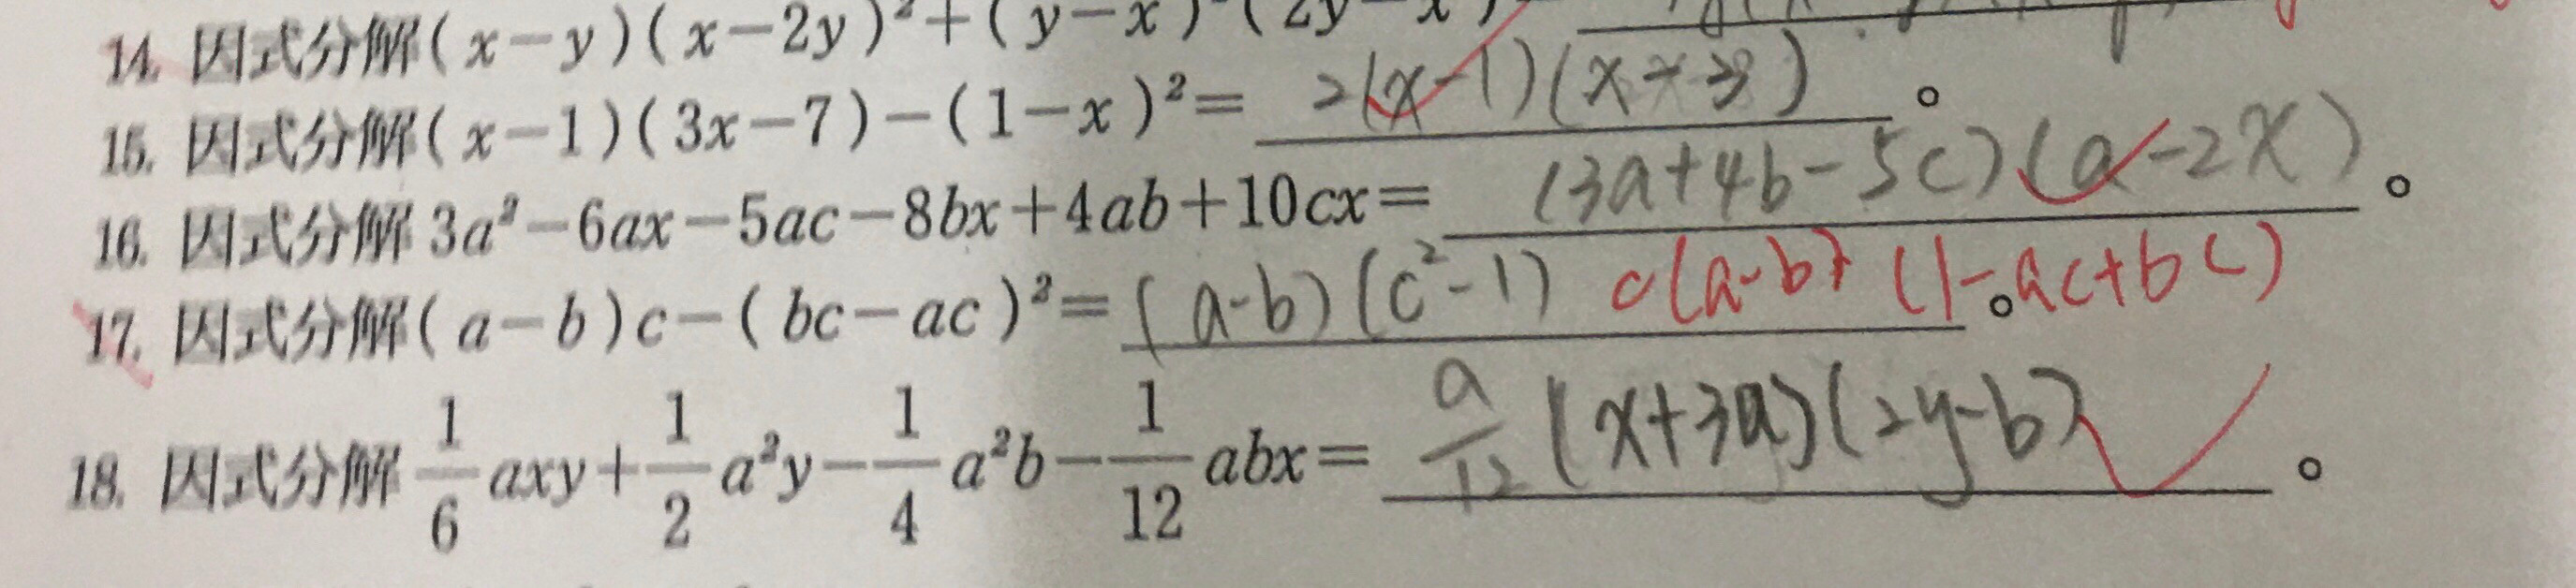 14. 因式分解(x-y)(x-2y)²+(y-x)²(2y-x)
15. 因式分解(x-1)(3x-7)-(1-x)²= 2(x-1)(x-3)。
16. 因式分解3a²-6ax-5ac-8bx+4ab+10cx= (3a+4b-5c)(a-2x)。
17. 因式分解(a-b)c-(bc-ac)²= (a-b)(c²-1) c(a-b)(1-ac+bc)。
18. 因式分解\frac{1}{6}axy+\frac{1}{2}a²y-\frac{1}{4}a²b-\frac{1}{12}abx= \frac{a}{12}(x+3a)(2y-b)。